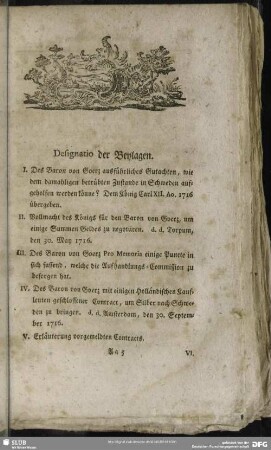 Designatio der Beylagen.
I. Des Baron von Goertz ausführliches Gutachten, wie
dem damahligen betrübten Zustande in Schweden auf-
geholfen werden könne? Dem König Carl XII. Ao. 1716
übergeben.
II. Vollmacht des Königs für den Baron von Goertz, um
einige Summen Geldes zu negotiiren. d. d. Torpum,
den 30. May 1716.
III. Des Baron von Goertz Pro Memoria einige Puncte in
sich fassend, welche die Aufhandlungs-Commission zu
besorgen hat.
IV. Des Baron von Goertz mit einigen Holländischen Kauf-
leuten geschlossener Contract, um Silber nach Schwe-
den zu bringen. d. d. Amsterdam, den 30. Septem-
ber 1716.
V. Erläuterung vorgemeldten Contracts.
Aa 5
VI.
SLUB
DFG